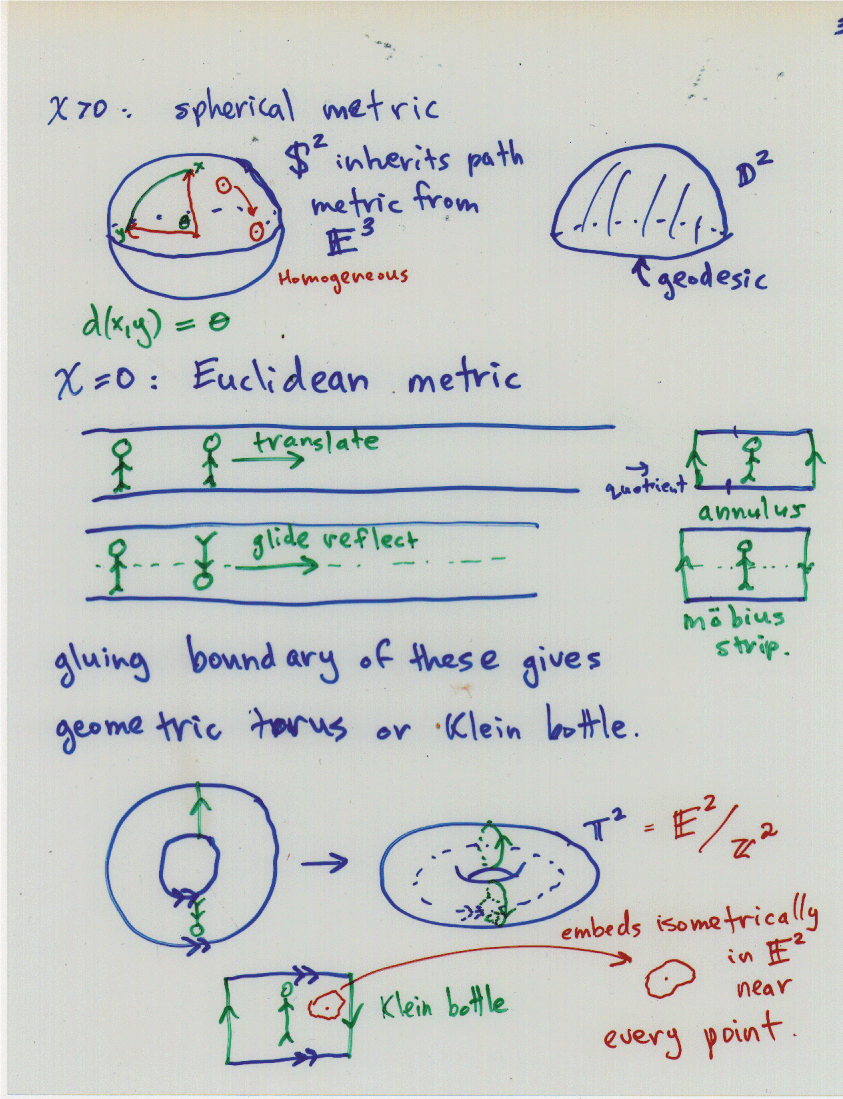 χ>0: spherical metric
$² inherits path
metric from
𝔼³
Homogeneous
x
y
θ
d(x,y) = θ
𝔻²
geodesic
χ=0: Euclidean metric
translate
quotient
annulus
glide reflect
möbius
strip.
gluing boundary of these gives
geometric torus or Klein bottle.
𝕋² = 𝔼²/ℤ²
embeds isometrically
in 𝔼²
near
every point.
Klein bottle